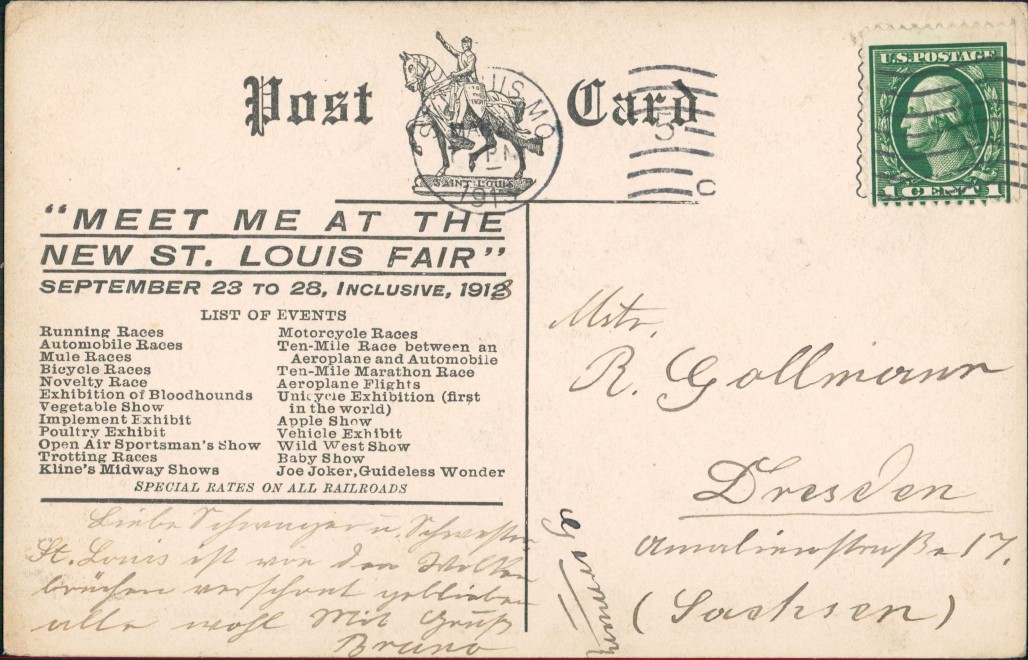 Post Card
SAINT LOUIS
ST. LOUIS, MO.
MAR
PM
191
5
C
U.S. POSTAGE
1 CENT 1
"MEET ME AT THE
NEW ST. LOUIS FAIR"
SEPTEMBER 23 TO 28, INCLUSIVE, 1913
LIST OF EVENTS
Running Races
Automobile Races
Mule Races
Bicycle Races
Novelty Race
Exhibition of Bloodhounds
Vegetable Show
Implement Exhibit
Poultry Exhibit
Open Air Sportsman's Show
Trotting Races
Kline's Midway Shows
Motorcycle Races
Ten-Mile Race between an
Aeroplane and Automobile
Ten-Mile Marathon Race
Aeroplane Flights
Unicycle Exhibition (first
in the world)
Apple Show
Vehicle Exhibit
Wild West Show
Baby Show
Joe Joker, Guideless Wonder
SPECIAL RATES ON ALL RAILROADS
Liebe Schwager u. Schwester
St. Louis ist von den Wolken
brüchen verschont geblieben
alle wohl Mit Gruß
Bruno
R. Gollmann
Dresden
Amalienstraße 17.
(Sachsen)
Germany